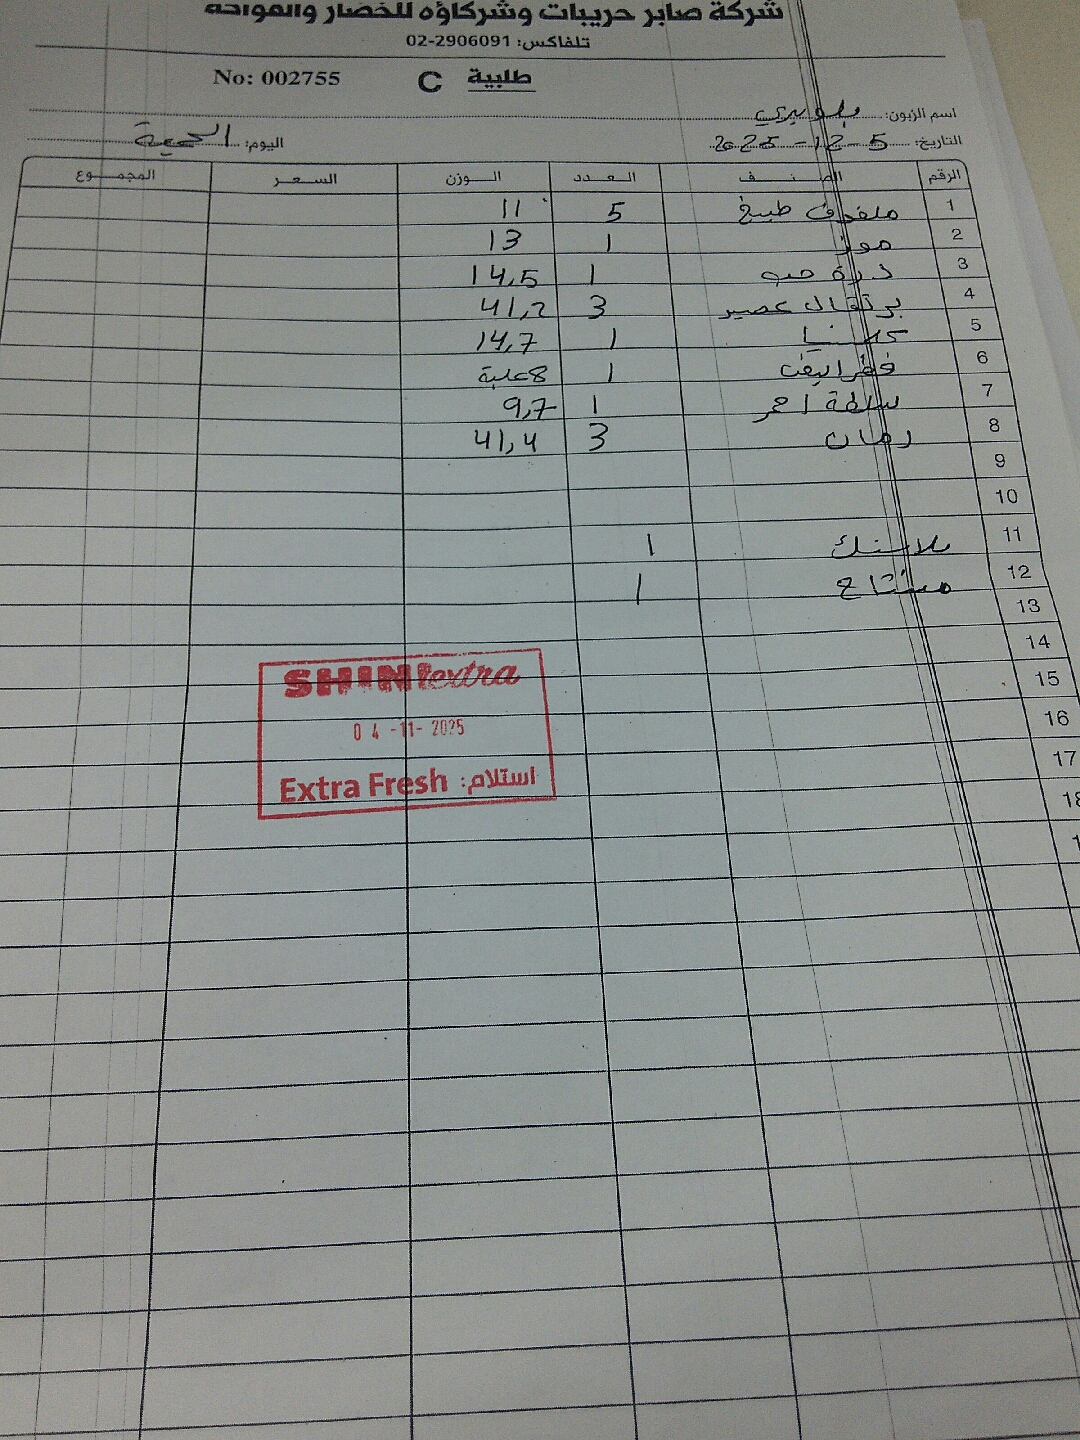 شركة صابر حريبات وشركاؤه للخضار والفواكه
تلفاكس: 02-2906091
طلبية C No: 002755
اسم الزبون:
التاريخ: 5-12-2025 اليوم: الجمعة
الرقم الصنف العدد الوزن السعر المجموع
1 ملفوف طبيخ 5 11
2 موز 1 13
3 ذرة حب 1 14,5
4 برتقال عصير 3 41,2
5 1 14,7
6 1 8 علبة
7 سلطة احمر 1 9,7
8 رمان 3 41,4
9
10
11 بلاستك 1
12 مشتاح 1
13
14
15
16
17
18
SHINI extra
04-11-2025
Extra Fresh استلام: